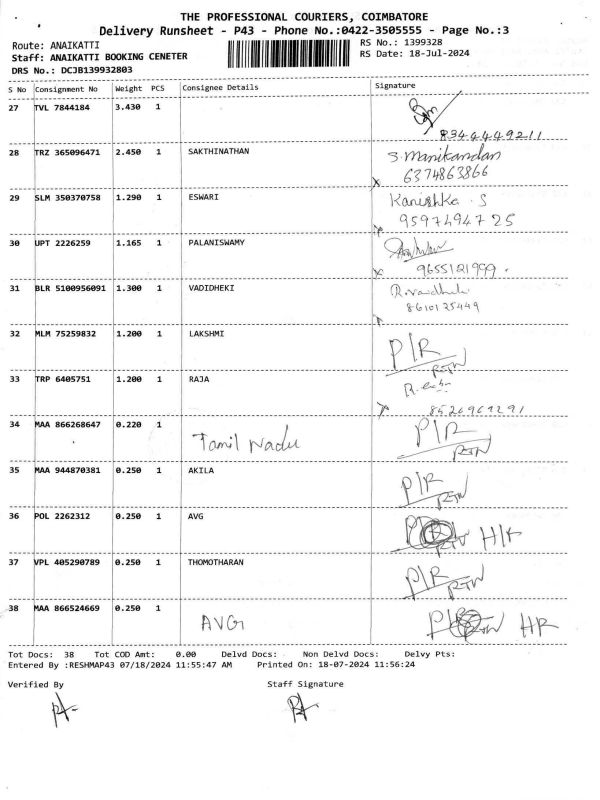 THE PROFESSIONAL COURIERS, COIMBATORE
Delivery Runsheet - P43 - Phone No.:0422-3505555 - Page No.:3
Route: ANAIKATTI RS No.: 1399328
Staff: ANAIKATTI BOOKING CENETER RS Date: 18-Jul-2024
DRS No.: DCJB139932803
S No Consignment No Weight PCS Consignee Details Signature
27 TVL 7844184 3.430 1
8344449211
28 TRZ 365096471 2.450 1 SAKTHINATHAN S. Manikandan
6374863866
29 SLM 350370758 1.290 1 ESWARI Kanishka S
9597494725
30 UPT 2226259 1.165 1 PALANISWAMY
9655121999.
31 BLR 5100956091 1.300 1 VADIDHEKI
8610125449
32 MLM 75259832 1.200 1 LAKSHMI P/R
RTN
33 TRP 6405751 1.200 1 RAJA
8526969291
34 MAA 866268647 0.220 1 Tamil Nadu P/R
RTN
35 MAA 944870381 0.250 1 AKILA P/R
RTN
36 POL 2262312 0.250 1 AVG
RTN
37 VPL 405290789 0.250 1 THOMOTHARAN P/R
RTN
38 MAA 866524669 0.250 1 AVG P/R RTN HR
Tot Docs: 38 Tot COD Amt: 0.00 Delvd Docs: Non Delvd Docs: Delvy Pts:
Entered By :RESHMAP43 07/18/2024 11:55:47 AM Printed On: 18-07-2024 11:56:24
Verified By Staff Signature